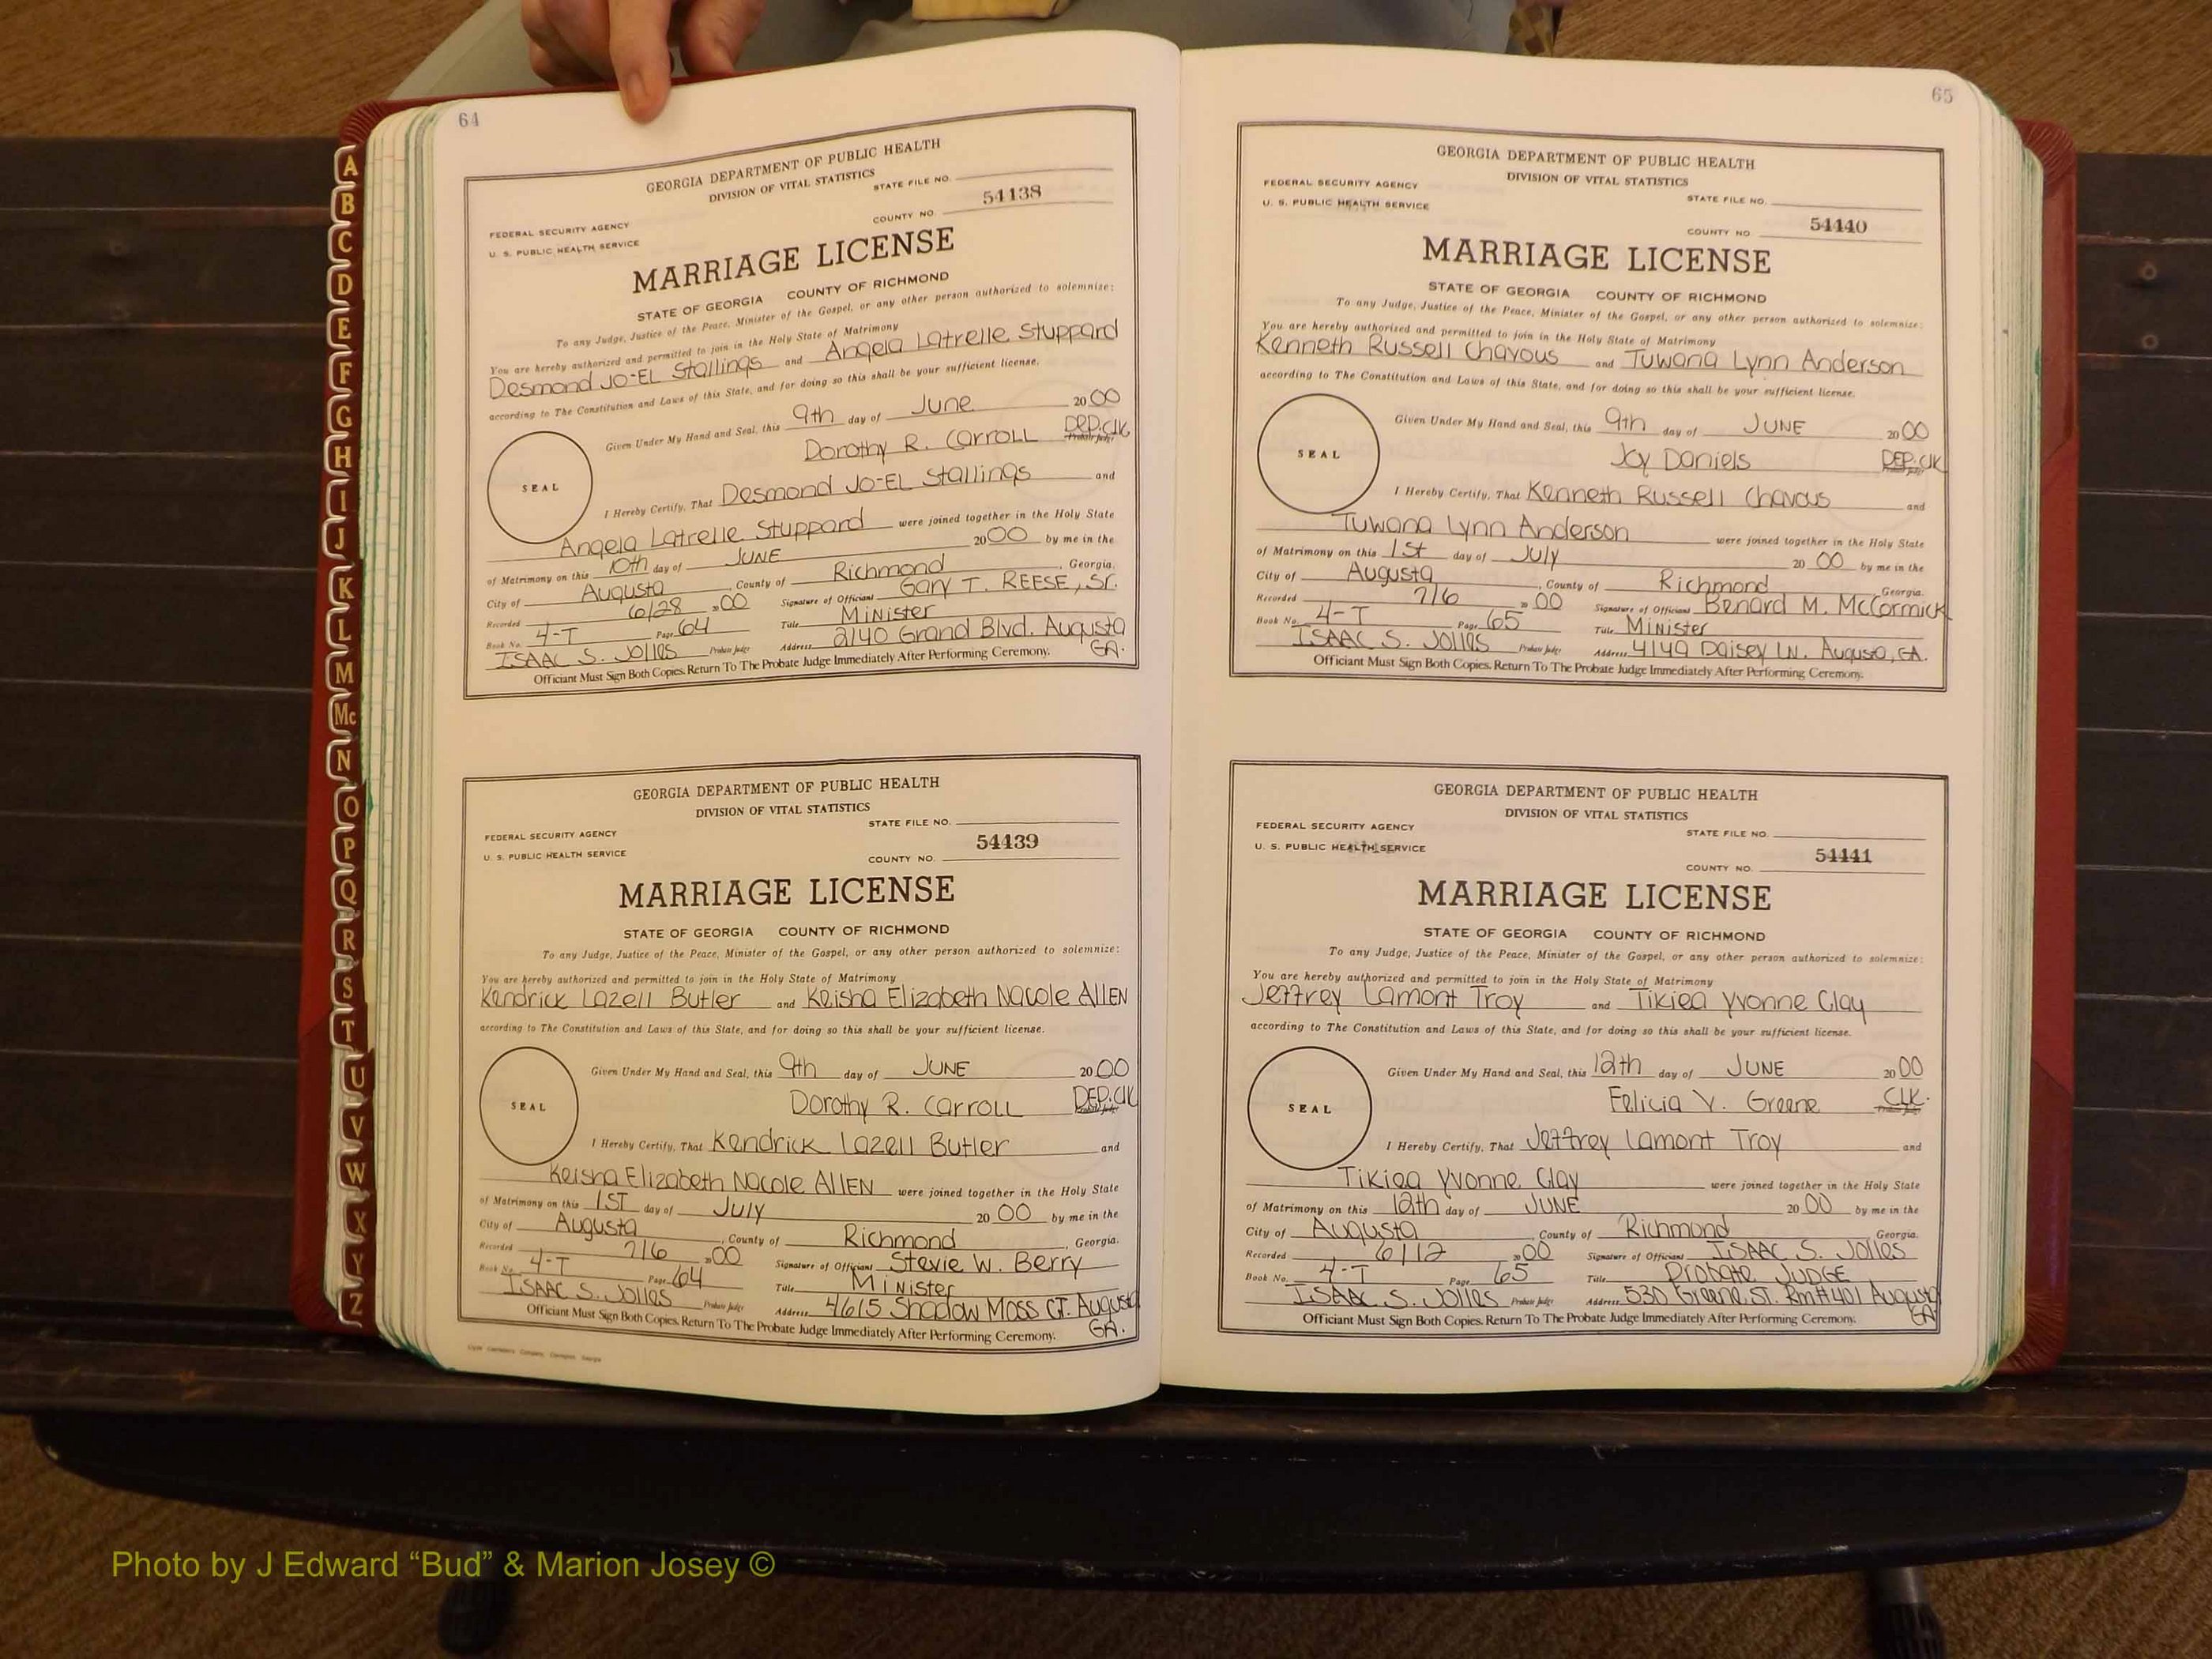 64
GEORGIA DEPARTMENT OF PUBLIC HEALTH
DIVISION OF VITAL STATISTICS
STATE FILE NO.
FEDERAL SECURITY AGENCY
U. S. PUBLIC HEALTH SERVICE
COUNTY NO. 54138
MARRIAGE LICENSE
STATE OF GEORGIA COUNTY OF RICHMOND
To any Judge, Justice of the Peace, Minister of the Gospel, or any other person authorized to solemnize:
You are hereby authorized and permitted to join in the Holy State of Matrimony
Desmond Jo-EL Stallings and Angela Latrelle Stuppard
according to The Constitution and Laws of this State, and for doing so this shall be your sufficient license.
Given Under My Hand and Seal, this 9th day of June 2000
Dorothy R. Carroll DEP. CLK
Probate Judge
SEAL
I Hereby Certify, That Desmond Jo-EL Stallings and
Angela Latrelle Stuppard were joined together in the Holy State
of Matrimony on this 10th day of JUNE 2000 by me in the
City of Augusta, County of Richmond, Georgia.
Recorded 6/28 2000 Signature of Officiant Gary T. REESE, Sr.
Book No. 4-T Page 64 Title Minister
ISAAC S. Jolles Probate Judge Address 2140 Grand Blvd. Augusta
GA.
Officiant Must Sign Both Copies. Return To The Probate Judge Immediately After Performing Ceremony.
GEORGIA DEPARTMENT OF PUBLIC HEALTH
DIVISION OF VITAL STATISTICS
STATE FILE NO.
FEDERAL SECURITY AGENCY
U. S. PUBLIC HEALTH SERVICE
COUNTY NO. 54439
MARRIAGE LICENSE
STATE OF GEORGIA COUNTY OF RICHMOND
To any Judge, Justice of the Peace, Minister of the Gospel, or any other person authorized to solemnize:
You are hereby authorized and permitted to join in the Holy State of Matrimony
Kendrick Lazell Butler and Keisha Elizabeth Nacole ALLEN
according to The Constitution and Laws of this State, and for doing so this shall be your sufficient license.
Given Under My Hand and Seal, this 9th day of JUNE 2000
Dorothy R. Carroll DEP. CLK
Probate Judge
SEAL
I Hereby Certify, That Kendrick Lazell Butler and
Keisha Elizabeth Nacole ALLEN were joined together in the Holy State
of Matrimony on this 1ST day of July 2000 by me in the
City of Augusta, County of Richmond, Georgia.
Recorded 7/6 2000 Signature of Officiant Stevie W. Berry
Book No. 4-T Page 64 Title Minister
ISAAC S. Jolles Probate Judge Address 4615 Shadow Moss CT. Augusta
GA.
Officiant Must Sign Both Copies. Return To The Probate Judge Immediately After Performing Ceremony.
65
GEORGIA DEPARTMENT OF PUBLIC HEALTH
DIVISION OF VITAL STATISTICS
FEDERAL SECURITY AGENCY
STATE FILE NO.
U. S. PUBLIC HEALTH SERVICE
COUNTY NO 54440
MARRIAGE LICENSE
STATE OF GEORGIA COUNTY OF RICHMOND
To any Judge, Justice of the Peace, Minister of the Gospel, or any other person authorized to solemnize:
You are hereby authorized and permitted to join in the Holy State of Matrimony
Kenneth Russell Chavous and Tuwana Lynn Anderson
according to The Constitution and Laws of this State, and for doing so this shall be your sufficient license.
Given Under My Hand and Seal, this 9th day of JUNE 2000
Joy Daniels DEP. CLK
Probate Judge
SEAL
I Hereby Certify, That Kenneth Russell Chavous and
Tuwana Lynn Anderson were joined together in the Holy State
of Matrimony on this 1st day of July 2000 by me in the
City of Augusta, County of Richmond Georgia.
Recorded 7/6 2000 Signature of Officiant Benard M. McCormick
Book No. 4-T Page 65 Title Minister
ISAAC S. Jolles Probate Judge Address 4149 Daisey LN. Augusta, GA.
Officiant Must Sign Both Copies. Return To The Probate Judge Immediately After Performing Ceremony.
GEORGIA DEPARTMENT OF PUBLIC HEALTH
DIVISION OF VITAL STATISTICS
FEDERAL SECURITY AGENCY
STATE FILE NO.
U. S. PUBLIC HEALTH SERVICE
COUNTY NO. 54441
MARRIAGE LICENSE
STATE OF GEORGIA COUNTY OF RICHMOND
To any Judge, Justice of the Peace, Minister of the Gospel, or any other person authorized to solemnize:
You are hereby authorized and permitted to join in the Holy State of Matrimony
Jeffrey Lamont Troy and Tikiea Yvonne Clay
according to The Constitution and Laws of this State, and for doing so this shall be your sufficient license.
Given Under My Hand and Seal, this 12th day of JUNE 2000
Felicia Y. Greene CLK.
Probate Judge
SEAL
I Hereby Certify, That Jeffrey Lamont Troy and
Tikiea Yvonne Clay were joined together in the Holy State
of Matrimony on this 12th day of JUNE 2000 by me in the
City of Augusta, County of Richmond Georgia.
Recorded 6/12 2000 Signature of Officiant ISAAC S. Jolles
Book No. 4-T Page 65 Title Probate JUDGE
ISAAC S. Jolles Probate Judge Address 530 Greene ST. Rm#401 Augusta
GA
Officiant Must Sign Both Copies. Return To The Probate Judge Immediately After Performing Ceremony.
A
B
C
D
E
F
G
H
I
J
K
L
M
Mc
N
O
P
Q
R
S
T
U
V
W
X
Y
Z
Photo by J Edward “Bud” & Marion Josey ©